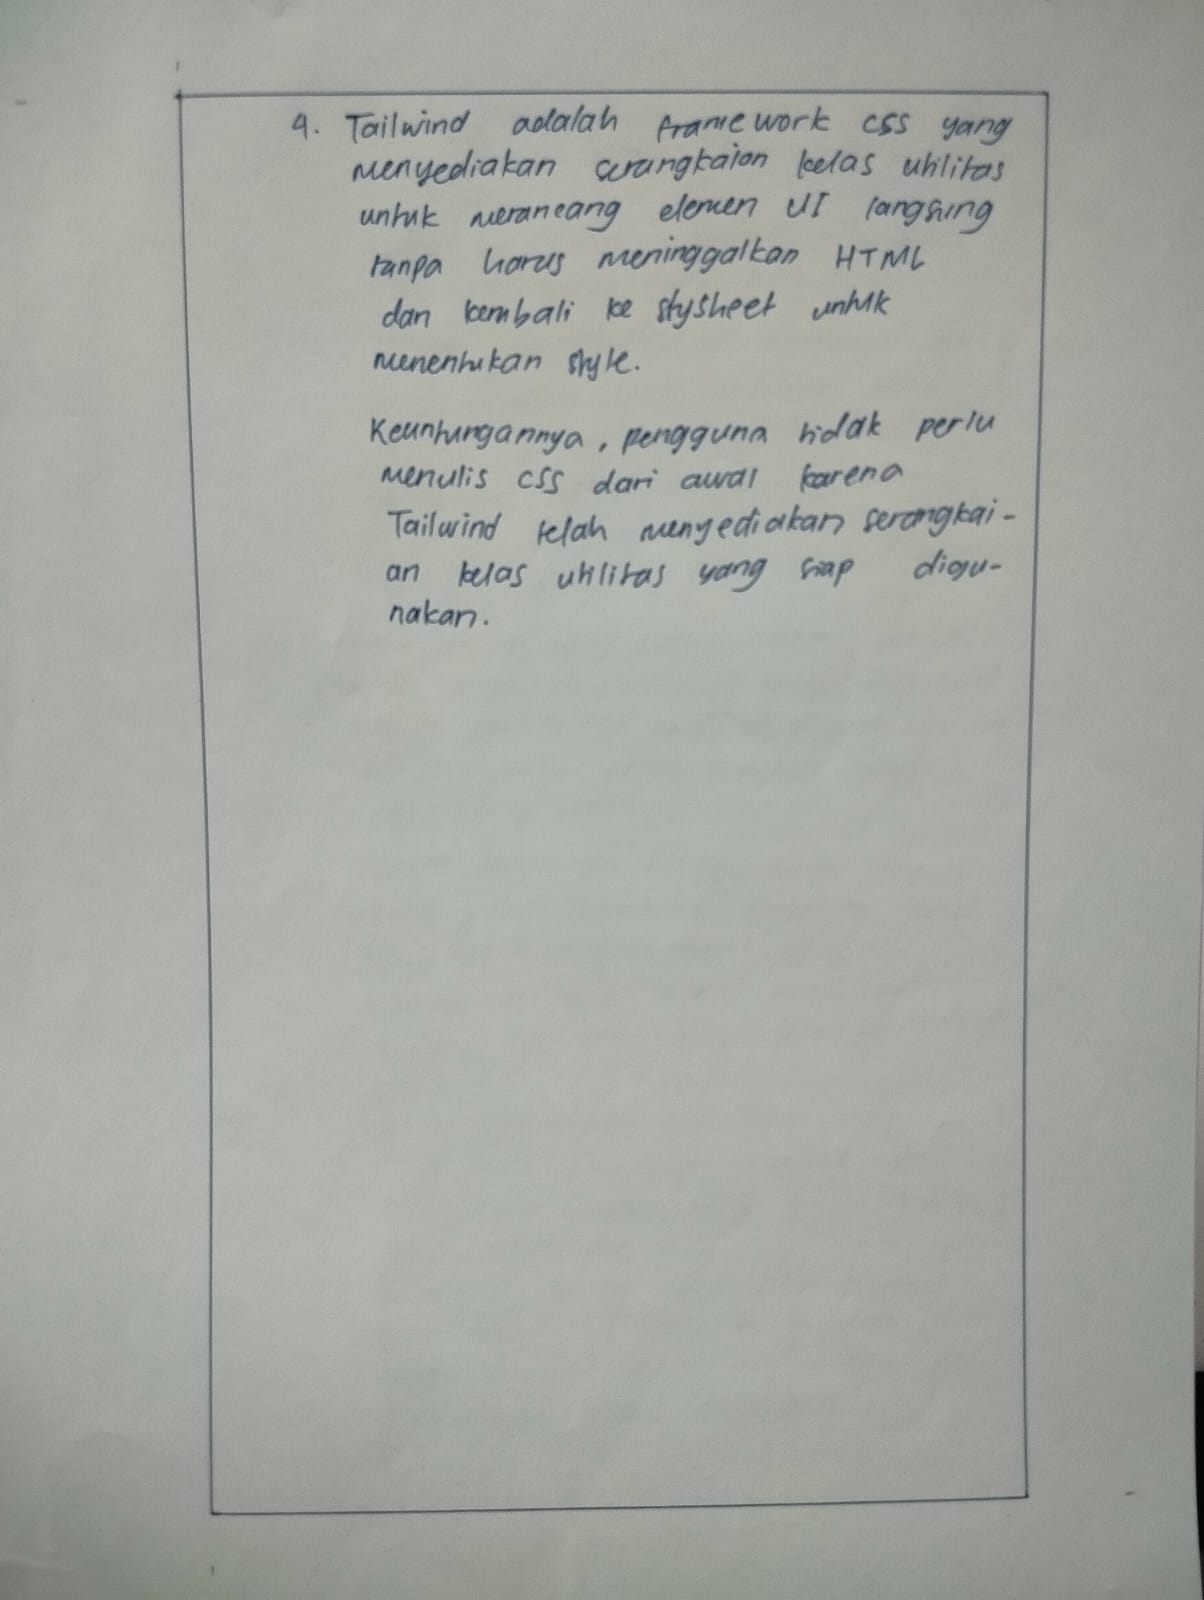 4. Tailwind adalah framework css yang
menyediakan serangkaian kelas utilitas
untuk merancang elemen UI langsung
tanpa harus meninggalkan HTML
dan kembali ke stysheet untuk
menentukan style.
Keuntungannya, pengguna tidak perlu
menulis css dari awal karena
Tailwind telah menyediakan serangkai-
an kelas utilitas yang siap digu-
nakan.